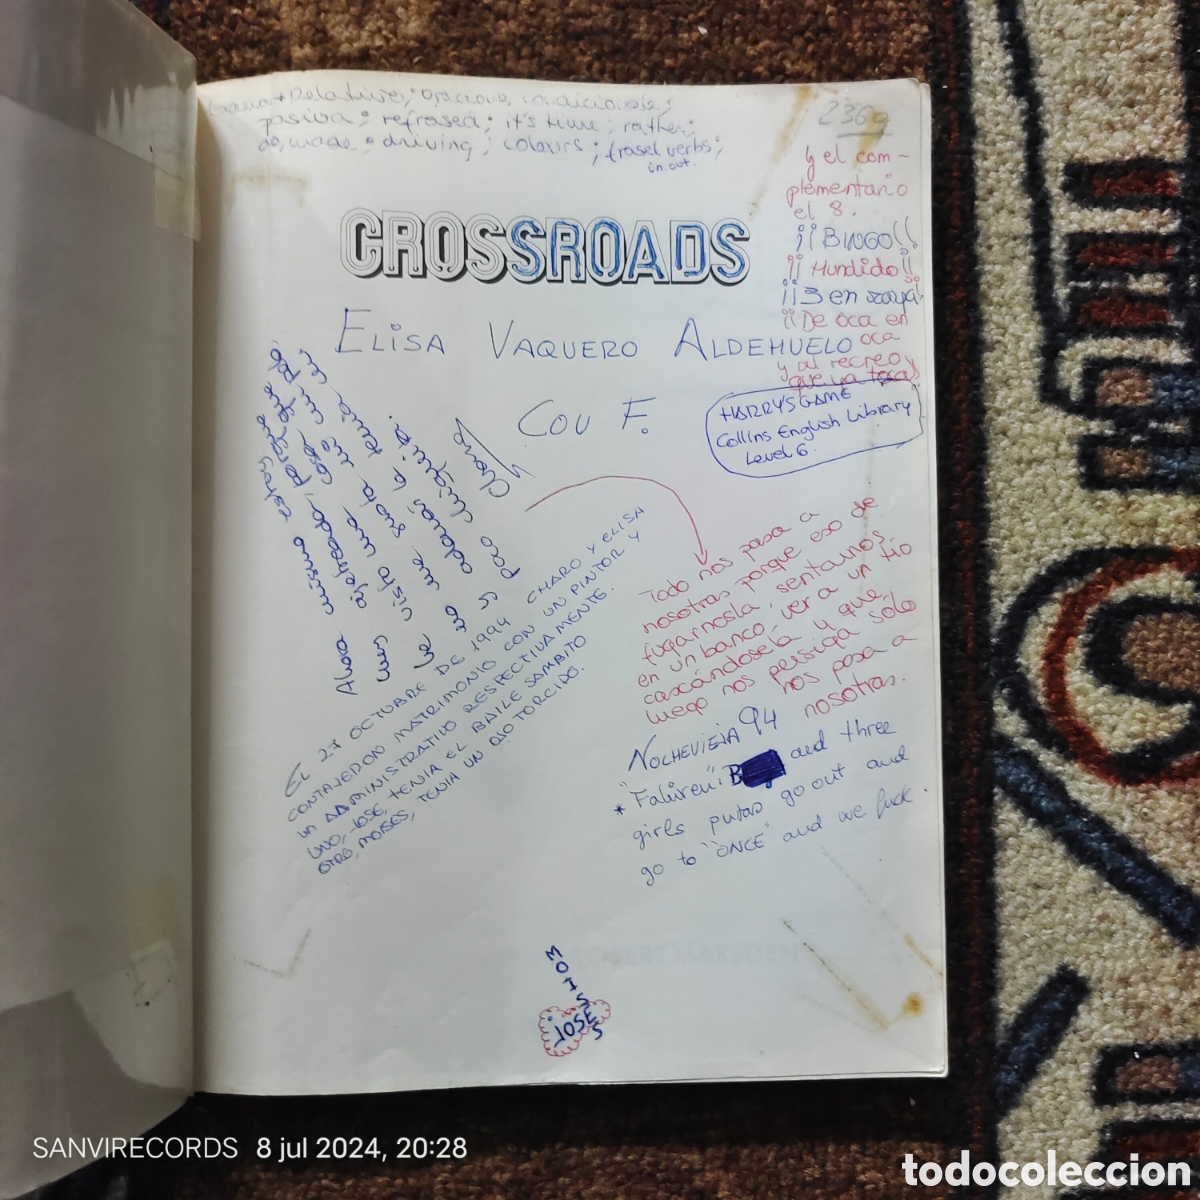 Relativos; oracione condicionale;
pasiva; refrased; it's time; rather;
do, made; driving; colours; frasel verbs;
in, out.
236
y el com-
plementario
el 8.
¡¡BINGO!!
¡¡Hundido!!
¡¡3 en raya!
¡¡De oca en
oca
y al recreo
que ya toca!
CROSSROADS
ELISA VAQUERO ALDEHUELO
COU F.
HARRY'S GAME
Collins English Library
Level 6.
Ahora mismo estoy
agilipollada, porque
he visto una cosa que
no me gusta ni un pelo
y además le tenía un
poco chiquito.
Charo
EL 27 OCTUBRE DE 1994 CHARO Y ELISA
CONTRAJERON MATRIMONIO CON UN PINTOR Y
UN ADMINISTRATIVO RESPECTIVAMENTE.
UNO, JOSE, TENIA EL BAILE SAMBITO
OTRO, MOISES, TENIA UN OJO TORCIDO.
Todo nos pasa a
nosotras porque eso de
fugarnosla, sentarnos
en un banco, ver a un tío
cascándosela y que,
luego nos persiga sólo
nos pasa a
nosotras.
NOCHEVIEJA 94
* "Faliren": B and three
girls putas go out and
go to "ONCE" and we fuck.
MOISES
JOSE
SANVIRECORDS 8 jul 2024, 20:28
todocoleccion